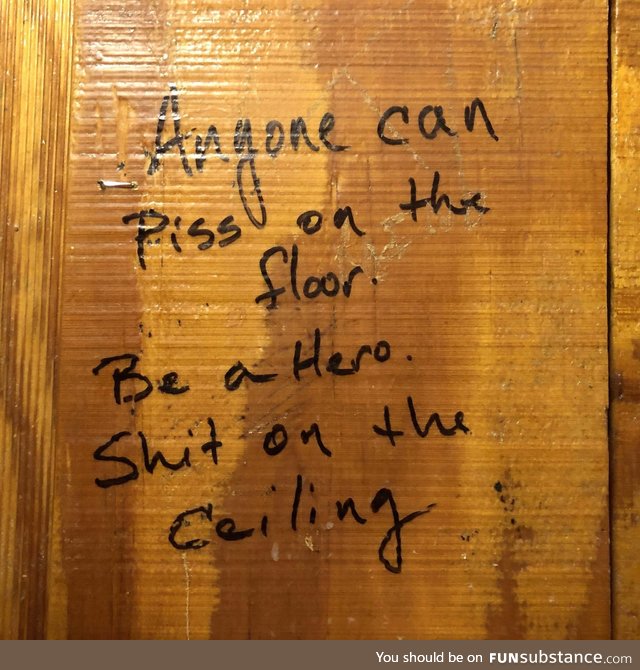 Anyone can
Piss on the
floor.
Be a Hero.
Shit on the
Ceiling
You should be on FUNsubstance.com